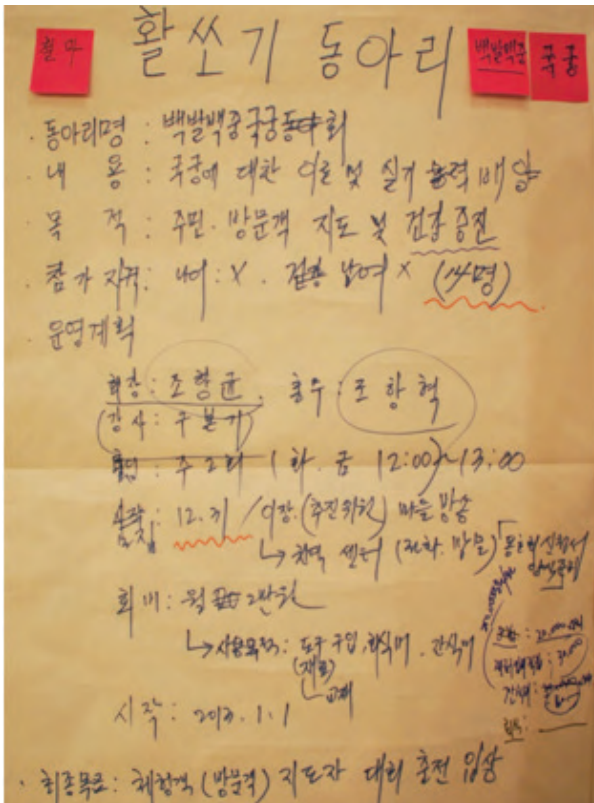 활쏘기 동아리
백발백중
국궁
· 동아리명 : 백발백중국궁동호회
· 내 용 : 국궁에 대한 이론 및 실기 능력 배양
· 목 적 : 주민·방문객 지도 및 건강증진
· 참가자격 : 나이 : X · 남여 X (14명)
· 운영계획
회장 : 조항균, 총무 : 조항혁
(강사 : 구본기)
주 2회 화·금 12:00~13:00
12. 31 / 이장·(추진위원) 마을방송
↳ 권역 센터 (전화·방문)
회비 : 월 2만원
↳ 사용목적 : 도구 구입, 회식비, 간식비
(재료)
교재
간식비 :
시작 : 2013. 1. 1
· 최종목표 : 체험객(방문객) 지도자 대회 출전 입상